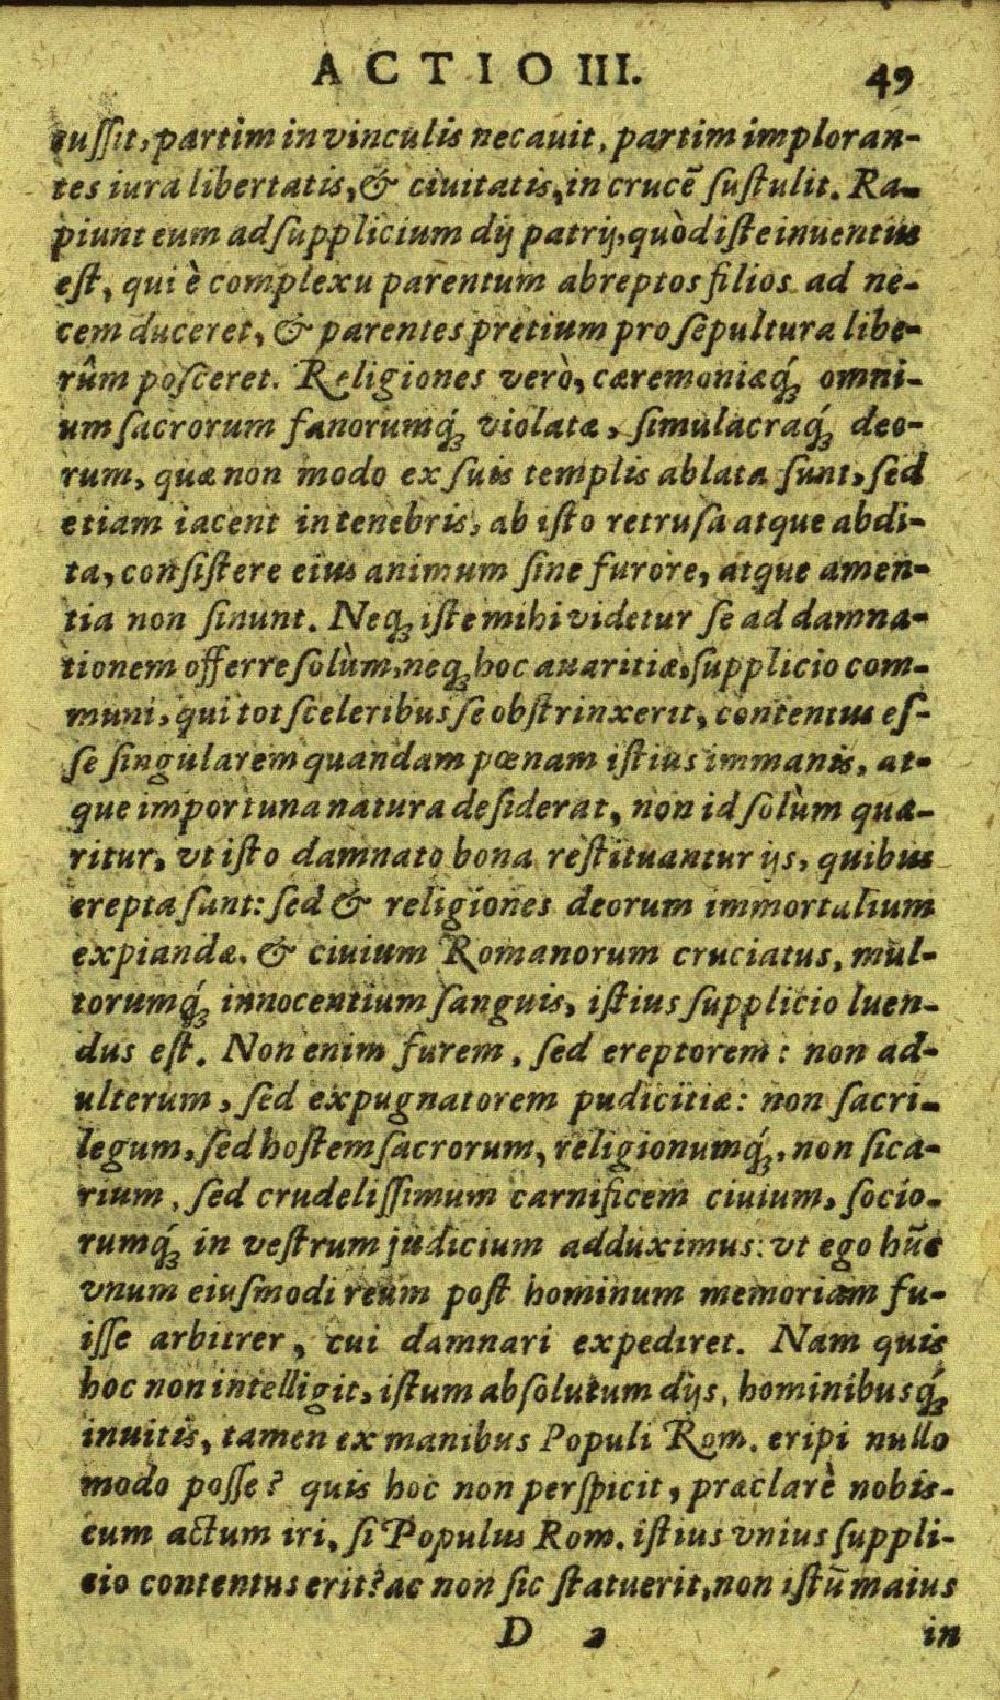 ACTIO III. 49
cussit, partim in vinculis necauit, partim imploran-
tes iura libertatis, & ciuitatis, in crucẽ sustulit. Ra-
piunt eum ad supplicium dij patrij, quòd iste inuentus
est, qui è complexu parentum abreptos filios ad ne-
cem duceret, & parentes pretium pro sepultura libe-
rûm posceret. Religiones verò, cæremoniæq́; omni-
um sacrorum fanorumq́; violatæ, simulacraq́; deo-
rum, quæ non modo ex suis templis ablata sunt, sed
etiam iacent in tenebris, ab isto retrusa atque abdi-
ta, consistere eius animum sine furore, atque amen-
tia non sinunt. Neq; iste mihi videtur se ad damna-
tionem offerre solùm, neq; hoc auaritiæ, supplicio com-
muni, qui tot sceleribus se obstrinxerit, contentus es-
se singularem quandam pœnam istius immanis, at-
que importuna natura desiderat, non id solùm quæ-
ritur, vt isto damnato bona restituantur ijs, quibus
erepta sunt: sed & religiones deorum immortalium
expiandæ. & ciuium Romanorum cruciatus, mul-
torumq́; innocentium sanguis, istius supplicio luen-
dus est. Non enim furem, sed ereptorem: non ad-
ulterum, sed expugnatorem pudicitiæ: non sacri-
legum, sed hostem sacrorum, religionumq́;, non sica-
rium, sed crudelissimum carnificem ciuium, socio-
rumq́; in vestrum judicium adduximus: vt ego hũc
vnum eiusmodi reum post hominum memoriam fu-
isse arbitrer, cui damnari expediret. Nam quis
hoc non intelligit, istum absolutum dijs, hominibusq́;
inuitis, tamen ex manibus Populi Rom. eripi nullo
modo posse? quis hoc non perspicit, præclarè nobis-
cum actum iri, si Populus Rom. istius vnius suppli-
cio contentus erit? ac non sic statuerit, non istũ maius
D 2 in